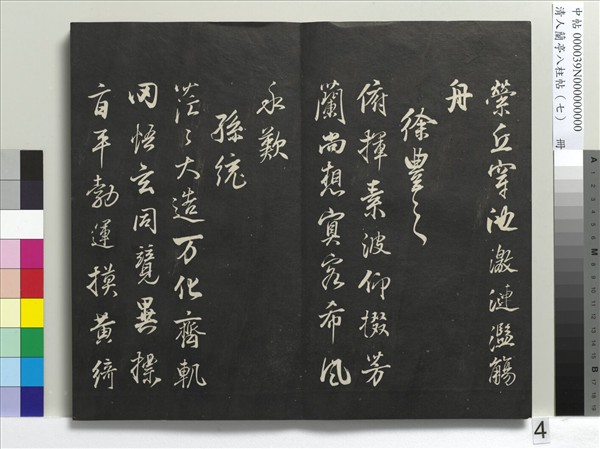 縈丘穿池激漣濫觴
舟
徐豊之
俯揮素波仰掇芳
蘭尚想冥客希風
永歎
孫統
茫〻大造万化齊軌
罔悟玄同竸異摽
旨平勃運摸黄綺
中帖 000039N000000000
清人蘭亭八柱帖（七） 冊
4